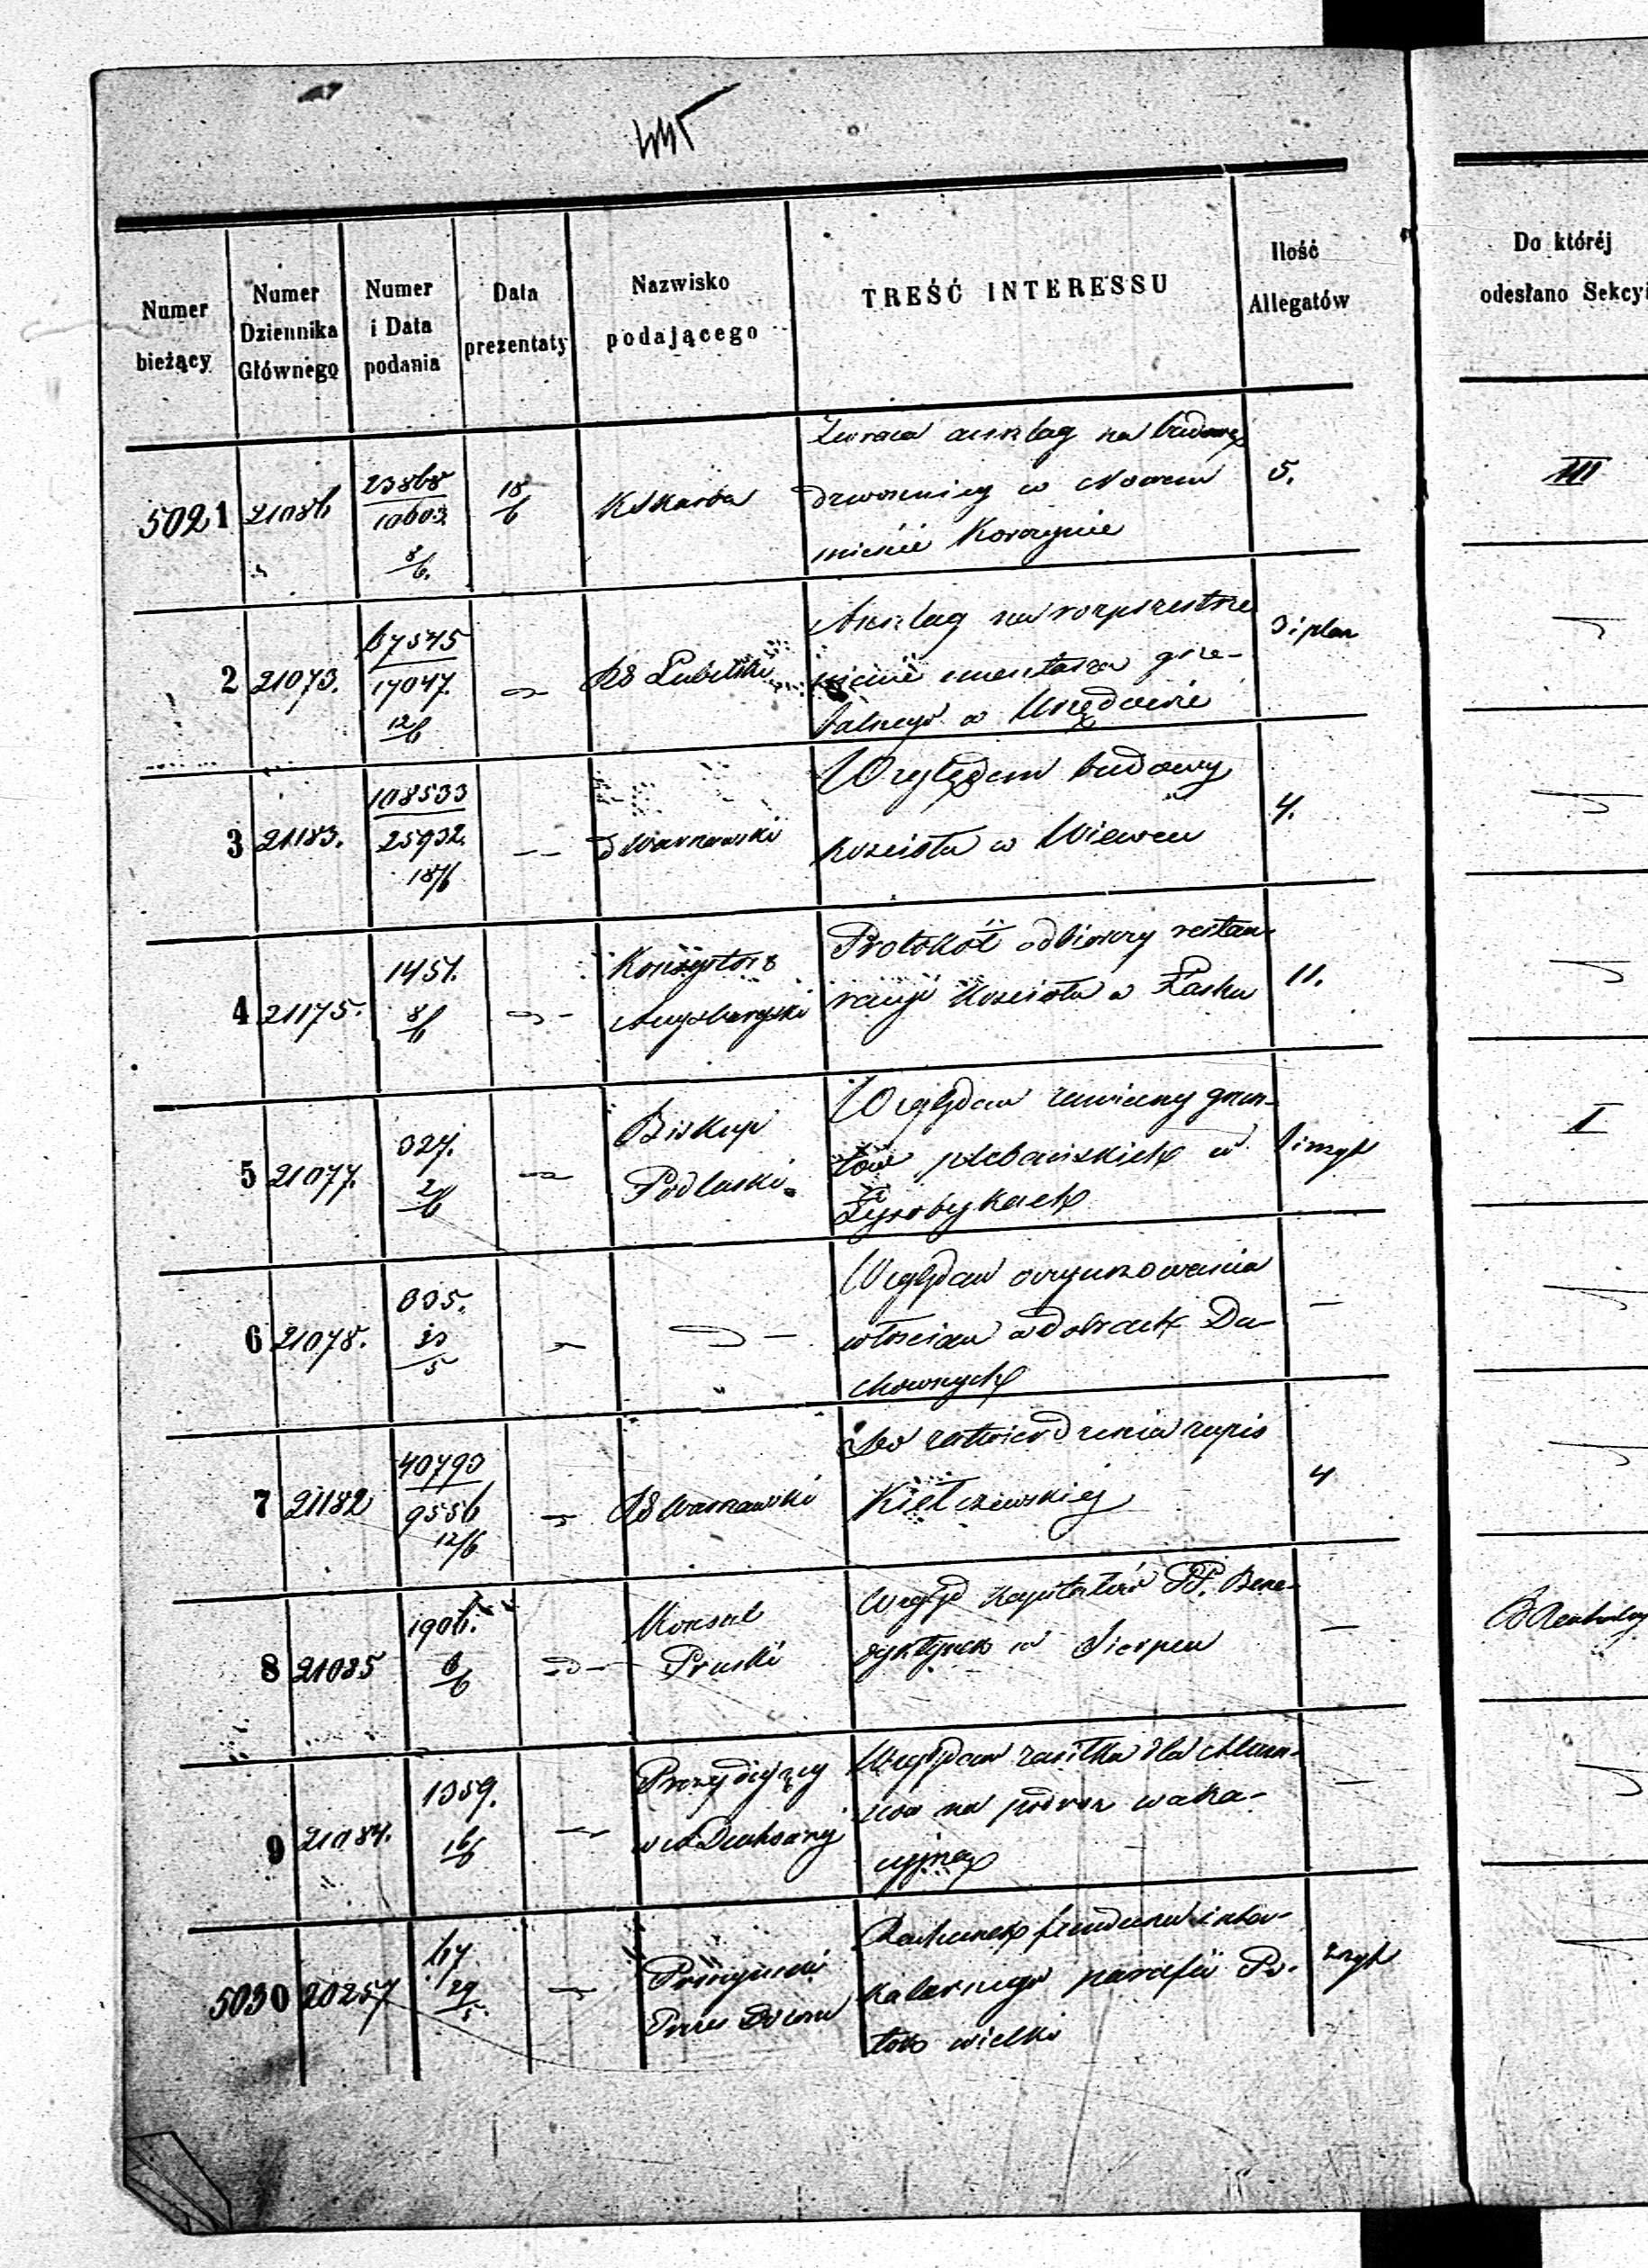 Numer bieżący
Numer Dziennika Głównego
Numer i Data podania
Data prezentaty
Nazwisko podającego
TREŚĆ INTERESSU
Ilość Allegatów
Do któréj odesłano Sekcyi
5021 21086 23868 / 10603 8/6. 18/6 K Skarbu
Zwraca anszlag na budowę
dzwonnicy w Nowem
mieście Korczynie
5. III
2 21073. 67545 / 17047. 12/6 RG Lubelski
Anszlag na rozprzestrze
nienie cmentarza grze-
balnego w Urzędowie
3 i plan
3 21183. 108533 / 25932. 18/6 Warszawski
Względem budowy
kościoła w Wiewcu
4.
4 21175. 1451. 8/6 Konsystorz
Augsburgski
Protokół odbiorczy restau-
racyi Kościoła w Łasku
11.
5 21077. 327. 2/6 Biskup
Podlaski
Względem zamiany grun-
tów plebańskich w
Łysobykach
I
6 21078. 335. 30/5
Względem oczynszowania
włościan w dobrach Du-
chownych
—
7 21182 40793 / 9556 12/6 RG Warszawski
Do zatwierdzenia zapis
Kiełczewskiej
4
8 21085 1906. 6/6 Konsul
Pruski
Względ kapitałów PP. Bene-
dyktynek w Sierpcu
—
9 21084. 1359. 16/6 Prezydujący
Względem zasiłku dla
na podróż waka-
cyjną
—
5030 20257 67. 29/5
Rachunek funduszu inter-
kalarnego parafii Po-
tok wielki